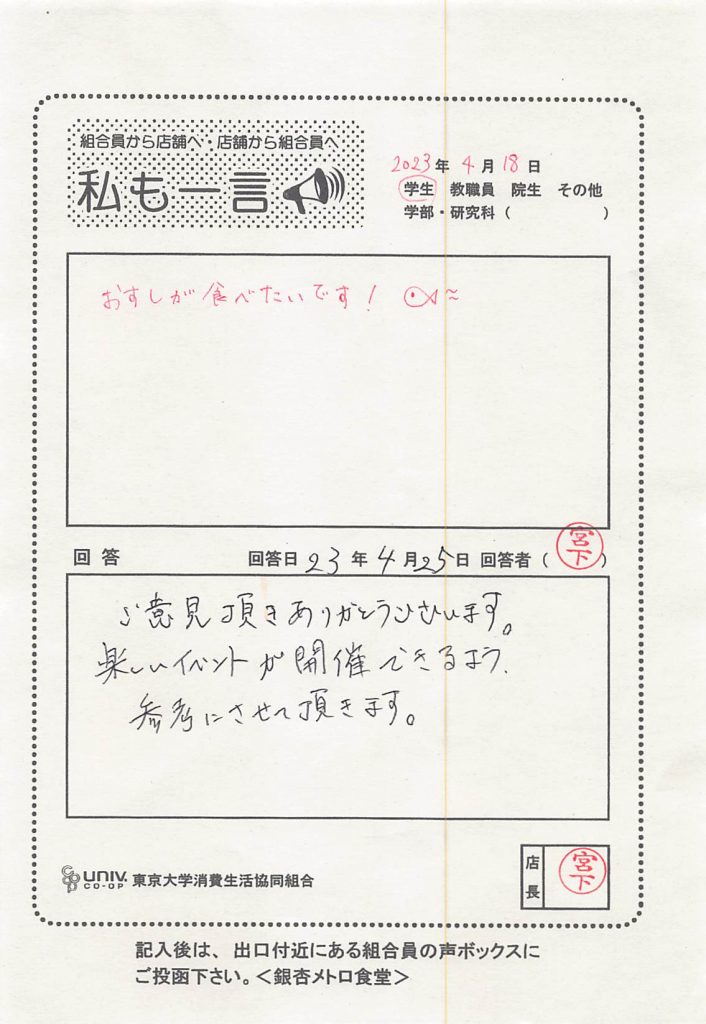 組合員から店舗へ・店舗から組合員へ
私も一言
2023年4月18日
学生 教職員 院生 その他
学部・研究科（ ）
おすしが食べたいです！
回答 回答日 23年4月25日 回答者（宮下）
ご意見頂きありがとうございます。
楽しいイベントが開催できるよう、
参考にさせて頂きます。
店長 宮下
UNIV. CO-OP 東京大学消費生活協同組合
記入後は、出口付近にある組合員の声ボックスに
ご投函下さい。＜銀杏メトロ食堂＞